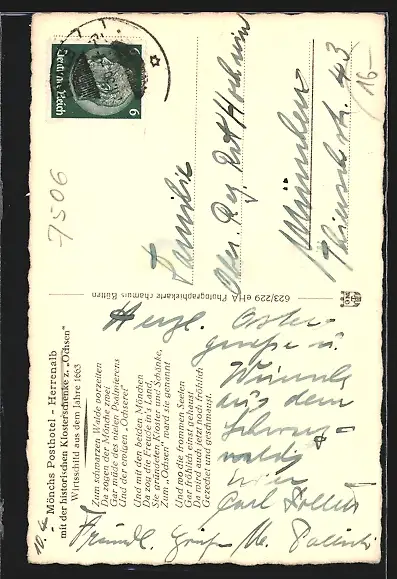 Mönchs Posthotel - Herrenalb
mit der historischen Klosterschenke z. „Ochsen"
Wirtsschild aus dem Jahre 1663
Zum schwarzen Walde vorzeiten
Da zogen der Mönche zwei
Gar müde des steten Psalmierens
Und der ewigen „Ochserei"
Und mit den beiden Mönchen
Da zog die Freude in's Land,
Sie gründeten Kloster und Schänke,
Zum „Ochsen" ward sie genannt
Und wo die frommen Seelen
Gar fröhlich einst gehaust
Da wird auch jetzt noch fröhlich
Gezechet und geschmaust.
10. 4.
Herzl. Oster-
grüße u.
aus dem
Schwarz-
wald
Carl
Freundl. Grüße
623/229 eHA Photographiekarte chamois Bütten
Deutsches Reich
6 6
Familie
Ober. Reg. Rat
München
43
7506
16-